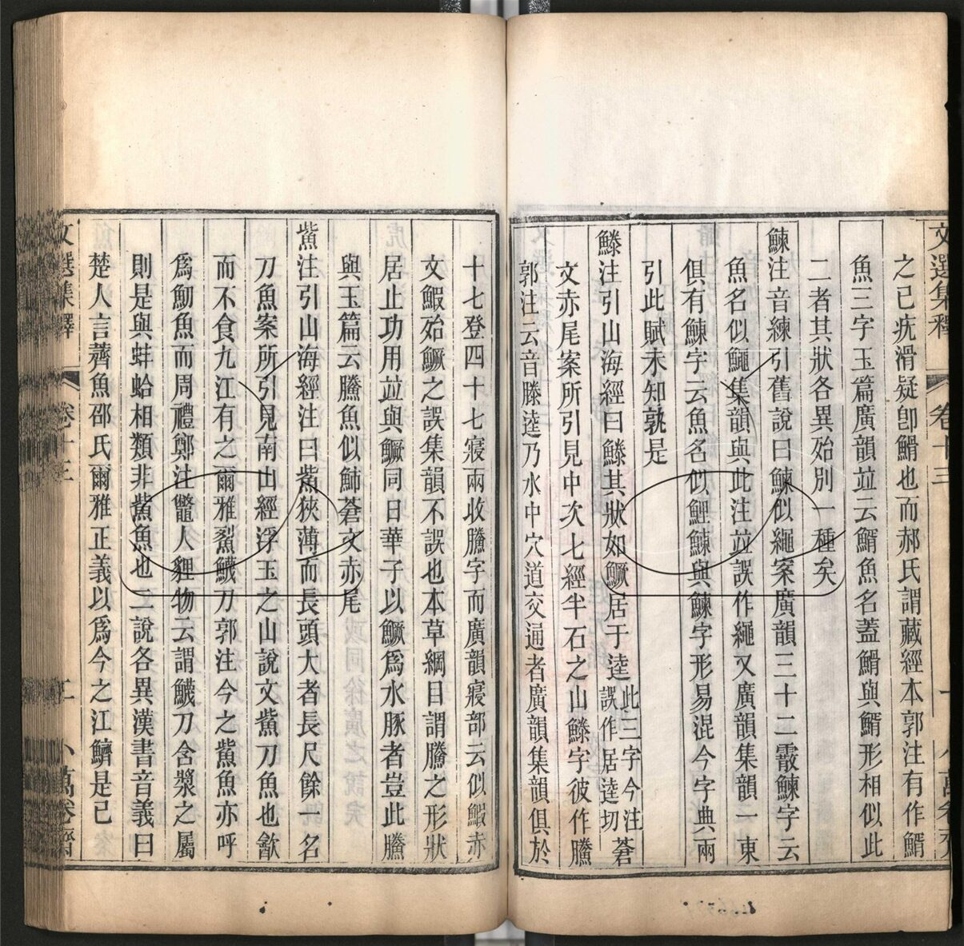 文選集釋 卷十三
之已疣滑疑卽鰼也而郝氏謂藏經本郭注有作鰼
魚三字玉篇廣韻竝云鰼魚名蓋鰼與鰼形相似此
二者其狀各異殆別一種矣
鰊注音練引舊說曰鰊似繩案廣韻三十二霰鰊字云
魚名似鱦集韻與此注竝誤作繩又廣韻集韻一東
俱有鰊字云魚名似鯉鰊與鰊字形易混今字典兩
引此賦未知孰是
鰧注引山海經曰鰧其狀如鱖居于逵此三字今注誤作居逵切蒼
文赤尾案所引見中次七經半石之山鰧字彼作䲢
郭注云音滕逵乃水中穴道交通者廣韻集韻俱於
十七登四十七寑兩收䲢字而廣韻寑部云似鰕赤
文鰕始鱖之誤集韻不誤也本草綱目謂䲢之形狀
居止功用竝與鱖同日華子以鱖爲水豚者豈此䲢
與玉篇云䲢魚似鰤蒼文赤尾
鮆注引山海經注曰鮆狹薄而長頭大者長尺餘一名
刀魚案所引見南山經浮玉之山說文鮆刀魚也㱃
而不食九江有之爾雅鮤鱴刀郭注今之鮆魚亦呼
爲魛魚而周禮鄭注鼈人貍物云謂鱴刀含漿之屬
則是與蚌蛤相類非鮆魚也二說各異漢書音義曰
楚人言薺魚邵氏爾雅正義以爲今之江鱭是已
文選集釋 卷十三
小萬卷齋